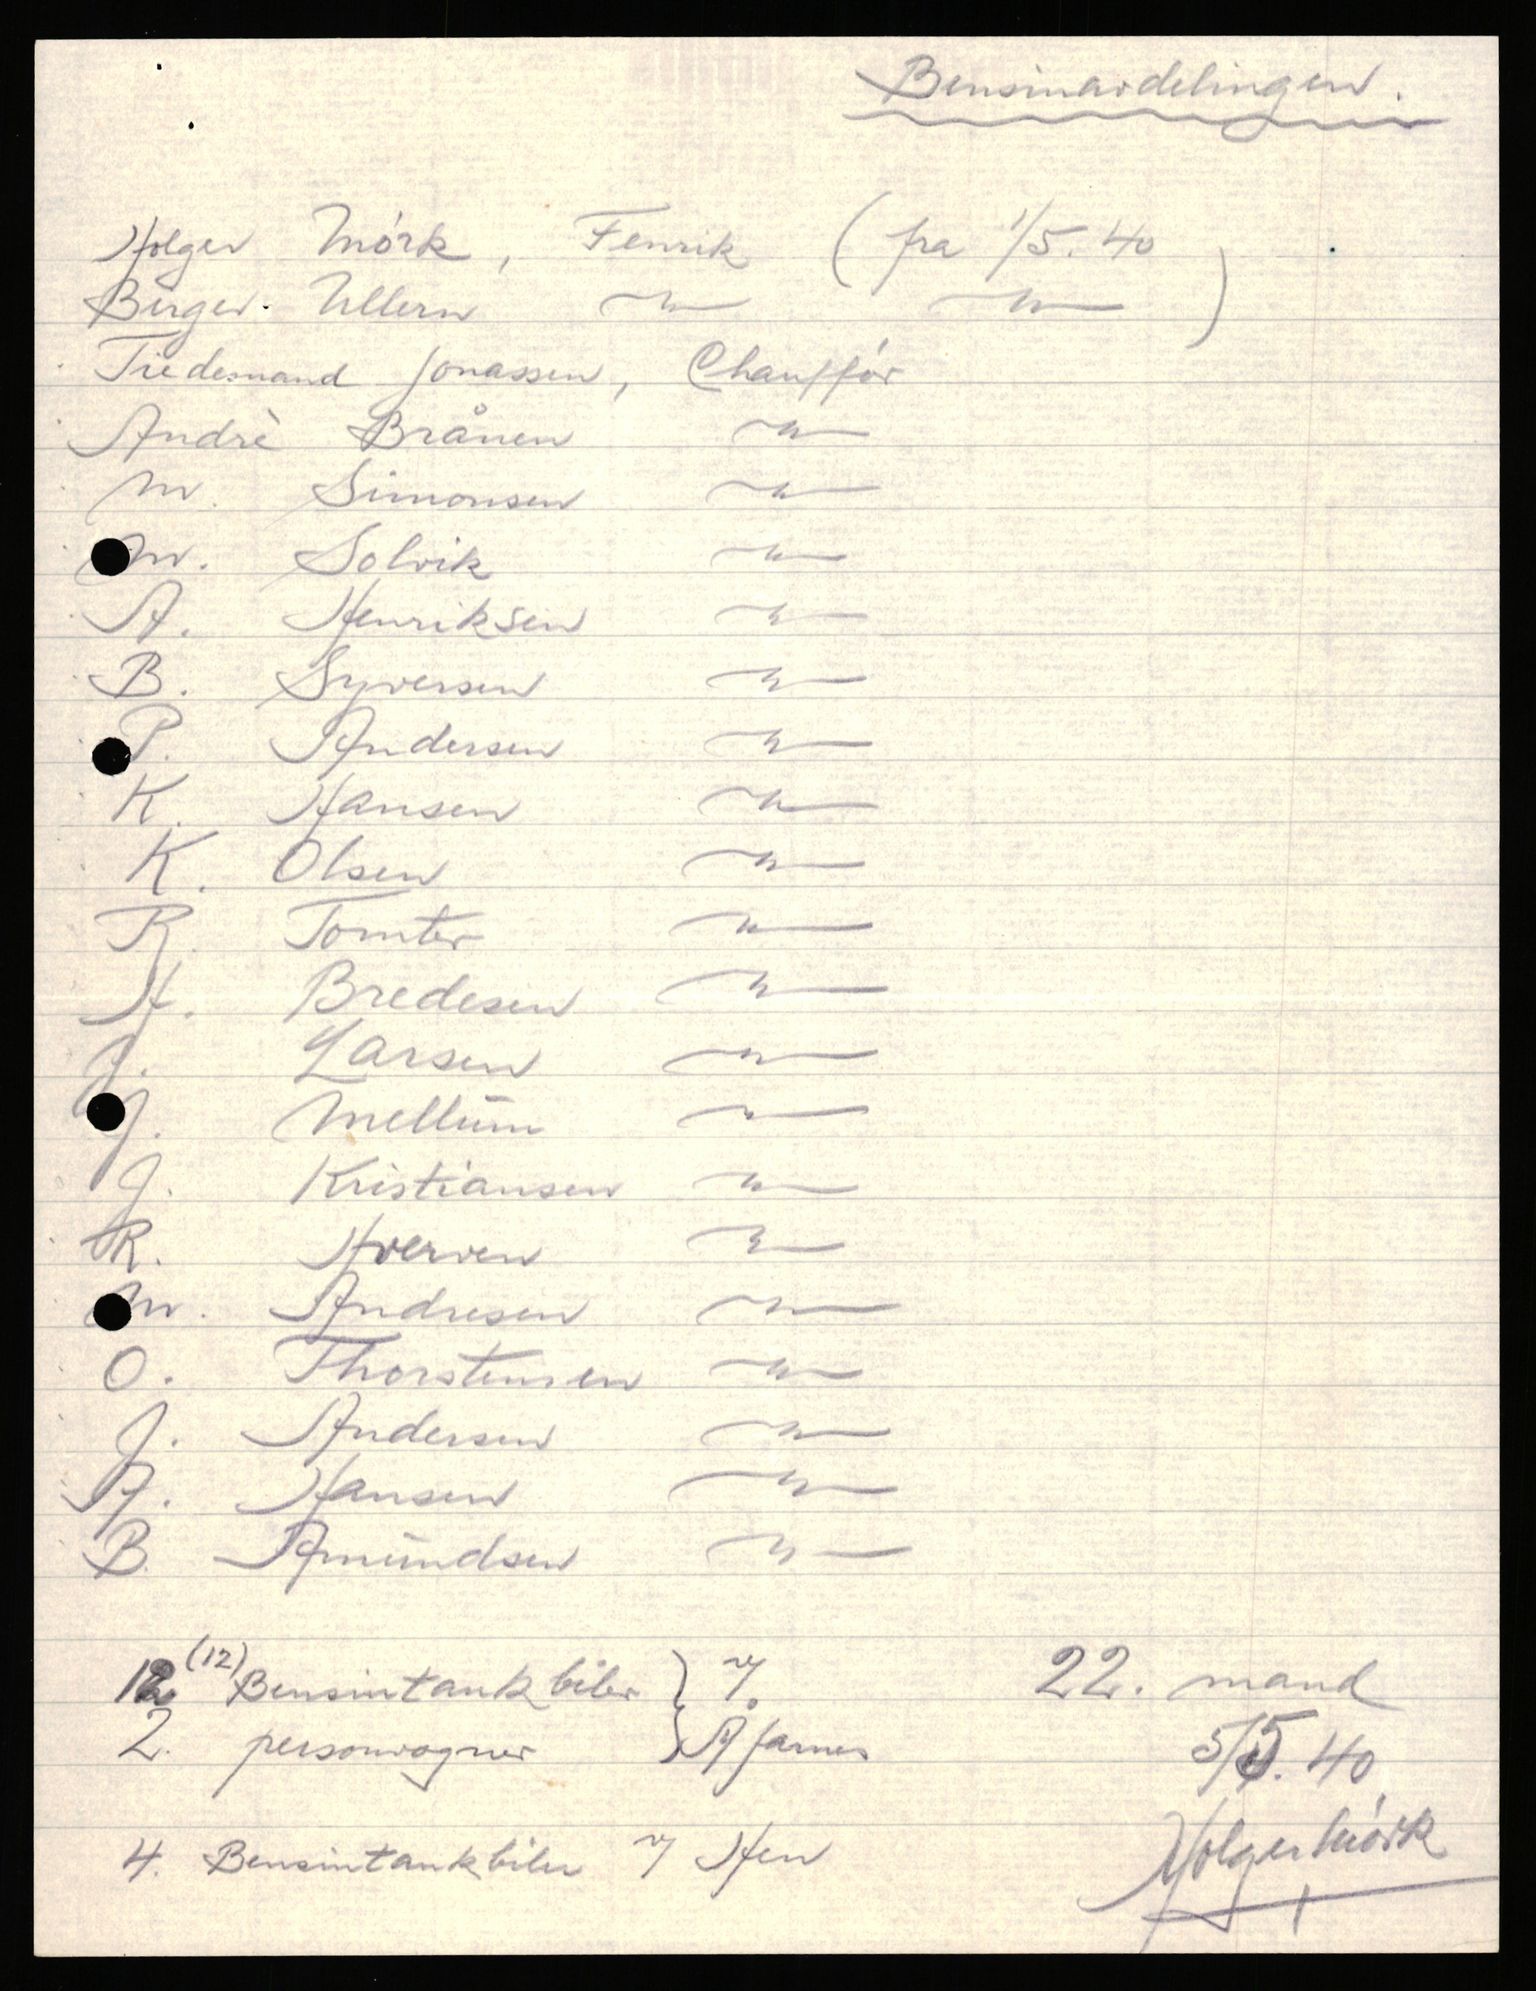 Bensinavdelingen.
Holger Mórk, Fenrik (fra 1/5. 40
Birger Ullern —"— —"— )
Tiedemand Jonassen, Chauffór
Andrè Brånen —"—
M. Simonsen —"—
M. Solvik —"—
A. Henriksen —"—
B. Syversen —"—
P. Andersen —"—
K. Hansen —"—
K. Olsen —"—
R. Tomter —"—
H. Bredesen —"—
J. Larsen —"—
J. Mellum —"—
J. Kristiansen —"—
R. Hverven —"—
M. Andresen —"—
O. Thorstensen —"—
J. Andersen —"—
A. Hansen —"—
B. Amundsen —"—
12 (12) Bensintankbiler } v/.
2. personvogner } Å Jarnes
22. mand
5/5. 40
4. Bensintankbiler v/ Hen
Holger Mórk